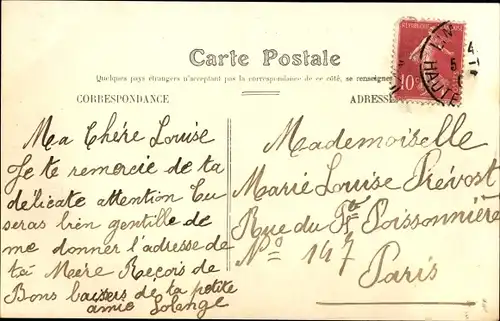 Carte Postale
Quelques pays étrangers n'acceptant pas la correspondance de ce côté, se renseigner
CORRESPONDANCE
ADRESSE
10c
HAUTE
Ma Chére Louise
Je te remercie de ta
délicate attention tu
seras bien gentille de
me donner l'adresse de
ta Mere Reçois de
Bons baisers de la petite
amie Solange
Mademoiselle
Marie Louise Prévost
Rue du Fb Poissonnière
No 147
Paris